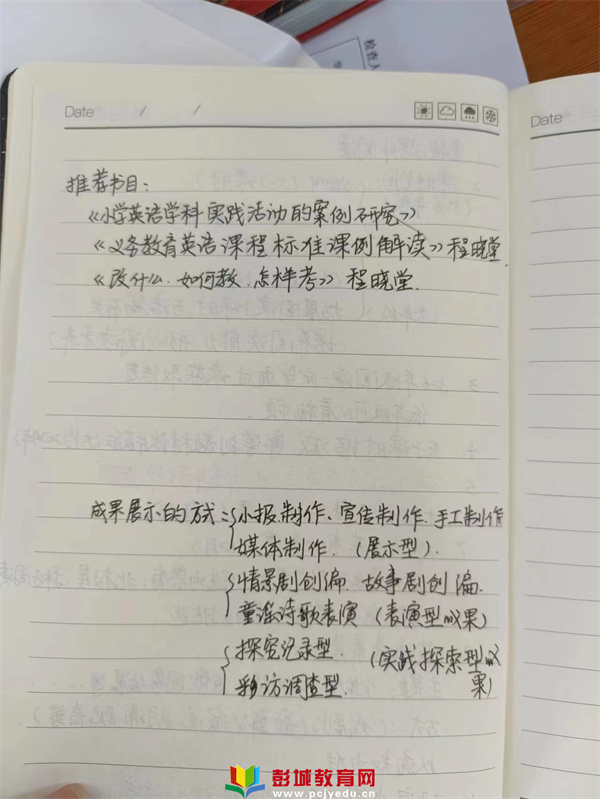 检查人
Date / /
Date
推荐书目:
《小学英语学科实践活动的案例研究》
《义务教育英语课程标准课例解读》程晓堂
《改什么.如何教.怎样考》程晓堂.
成果展示的方式:小报制作、宣传制作.手工制作
媒体制作.(展示型).
情景剧创编.故事剧创编.
童谣诗歌表演(表演型成果)
探究记录型.(实践探索型成
采访调查型.果)
彭城教育网
www.pcjyedu.cn